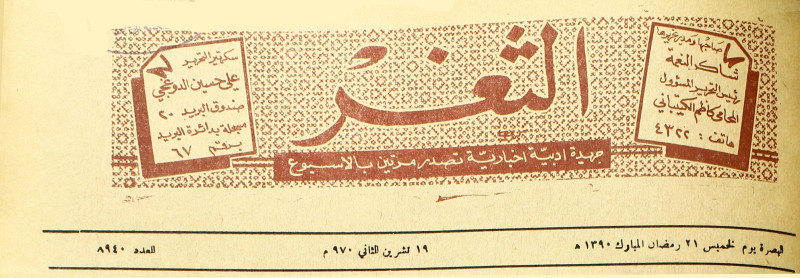 صاحبها ومدير تحريرها
شاكر النعمة
رئيس التحرير المسؤول
المحامي كاظم الكيتباني
هاتف : ٤٣٢٢
الثغر
جريدة ادبية اخبارية تصدر مرتين بالاسبوع
سكرتير التحرير
علي حسين الدوغجي
صندوق البريد ٢٠
مسجلة بدائرة البريد
برقم ٦٧
البصرة يوم الخميس ٢١ رمضان المبارك ١٣٩٠ ﻫ
١٩ تشرين الثاني ٩٧٠ م
العدد ٨٩٤٠